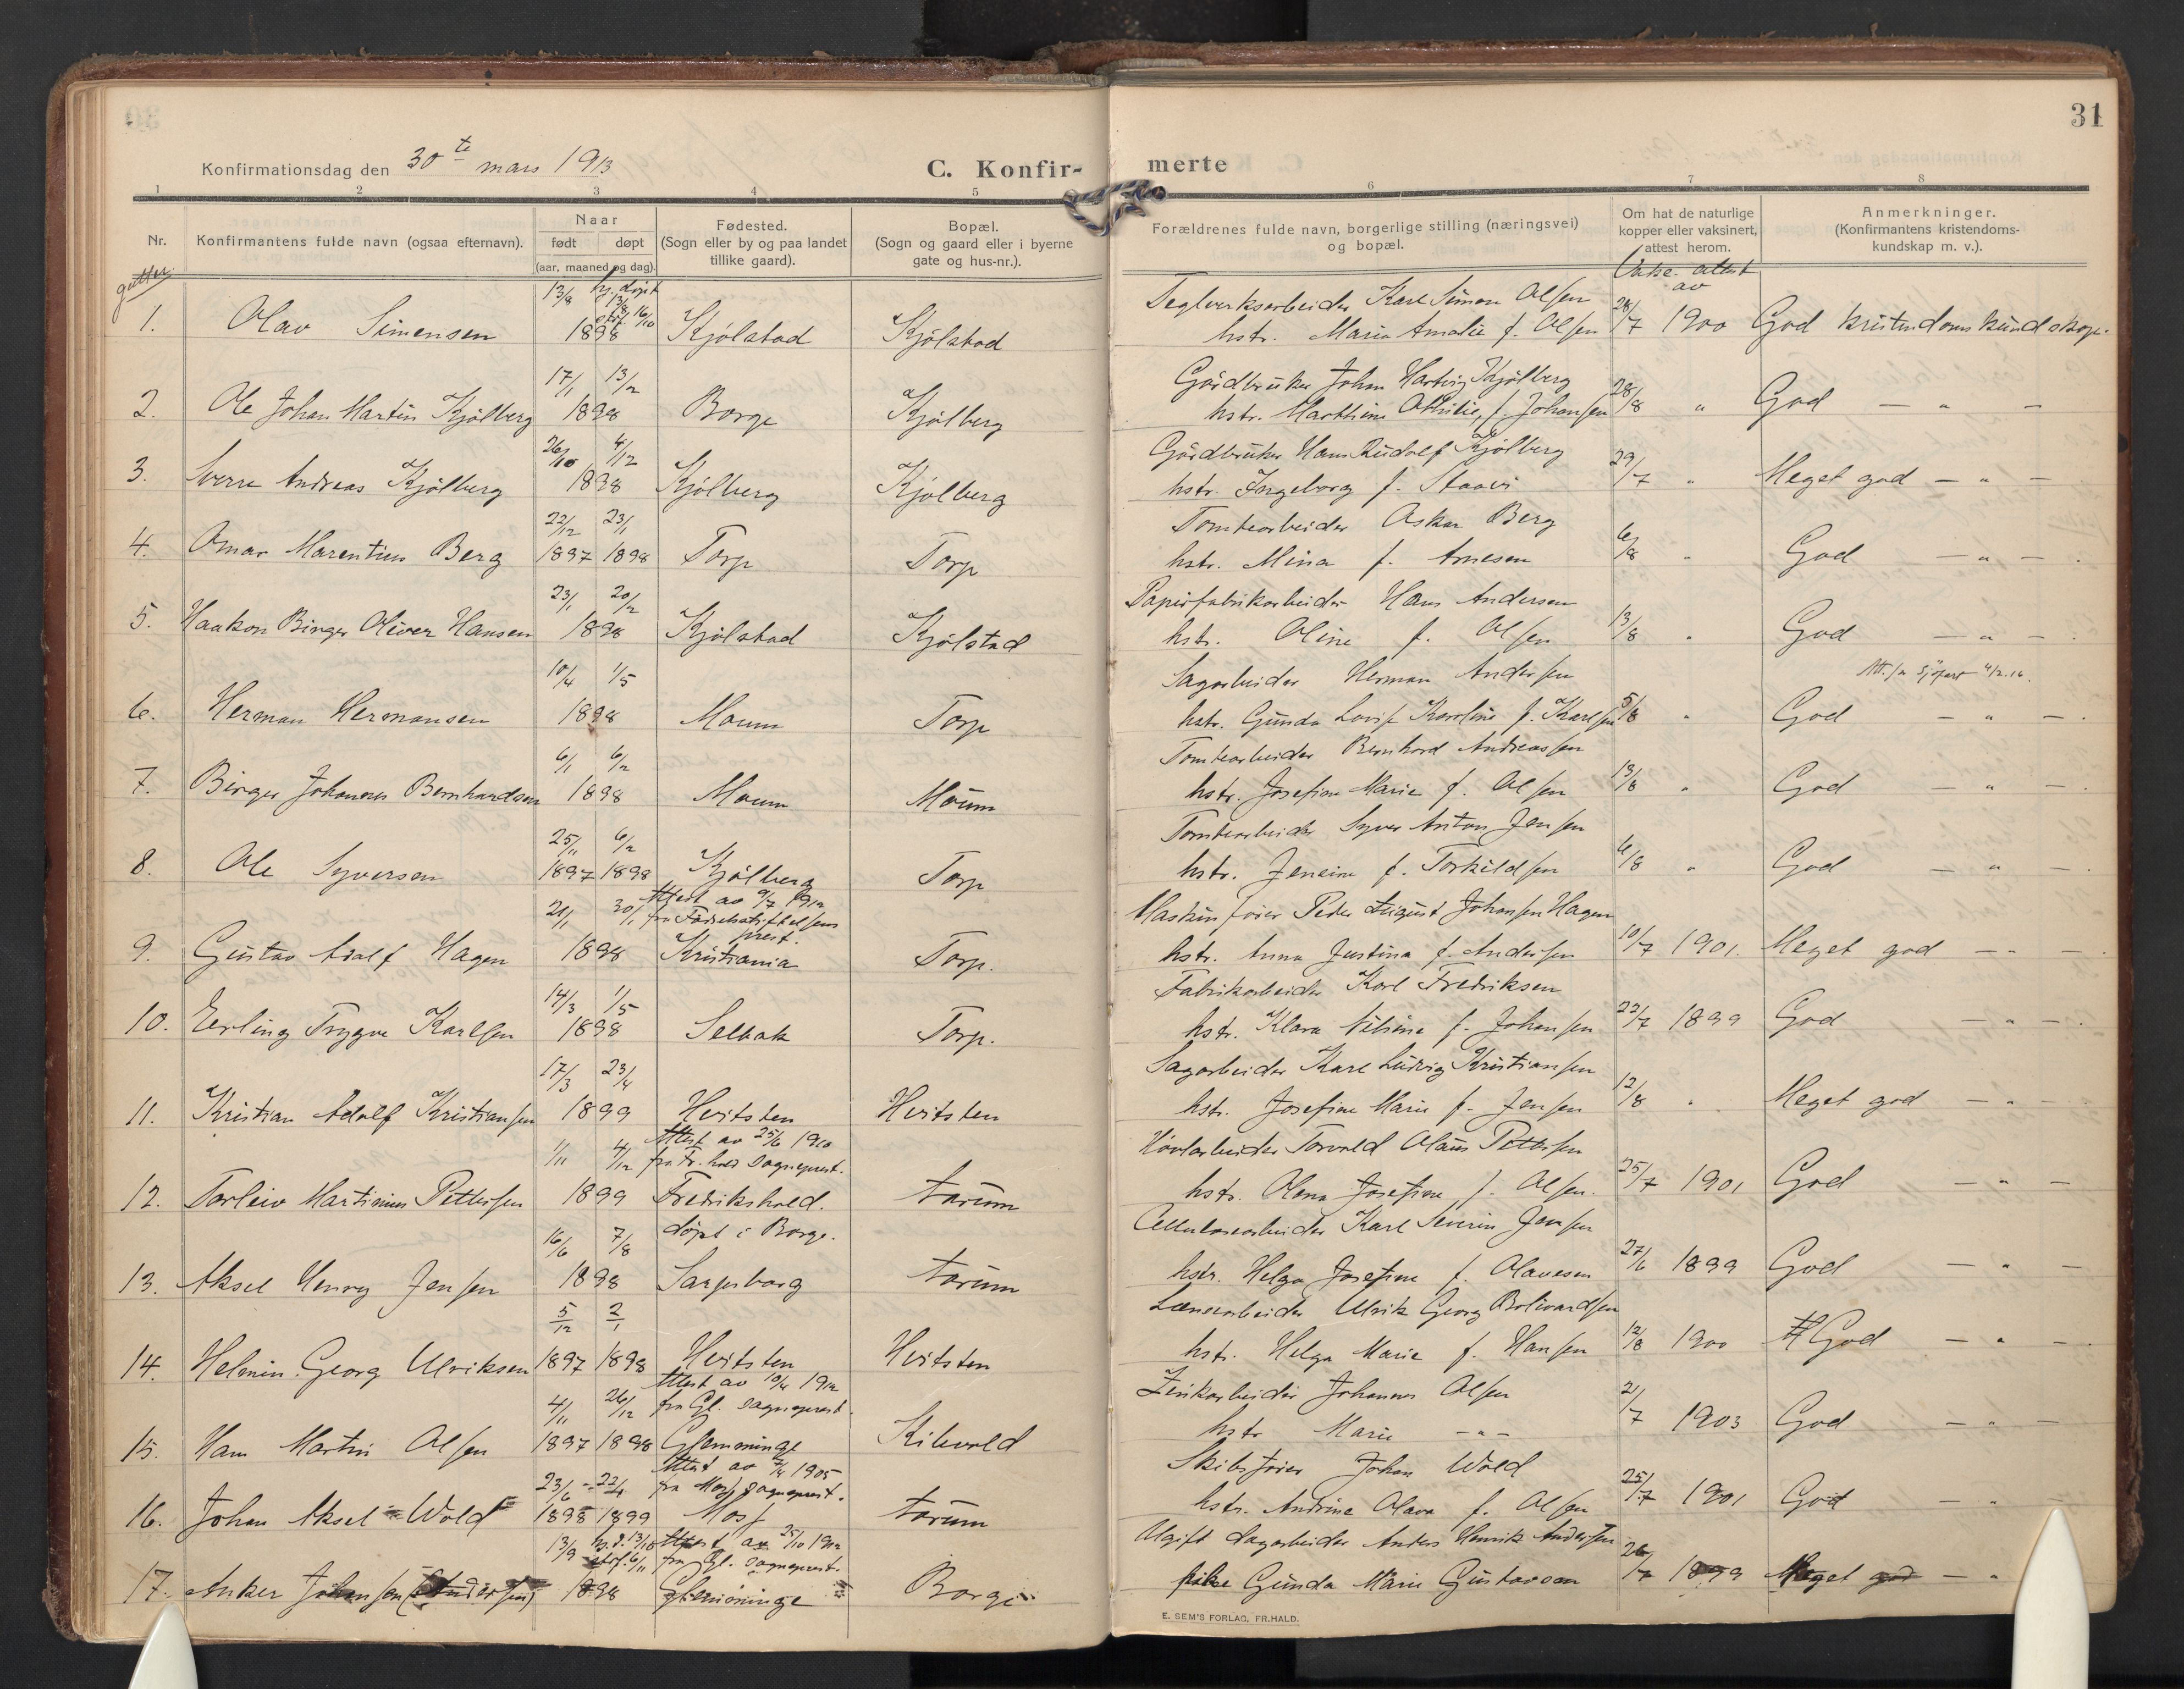 31
Konfirmationsdag den 30te mars 1913
C. Konfir-
merte
1 2 3 4 5 6 7 8
Nr.
Konfirmantens fulde navn (ogsaa efternavn).
Naar
født døpt
(aar, maaned og dag).
Fødested.
(Sogn eller by og paa landet
tillike gaard).
Bopæl.
(Sogn og gaard eller i byerne
gate og hus-nr.).
Forældrenes fulde navn, borgerlige stilling (næringsvei)
og bopæl.
Om hat de naturlige
kopper eller vaksinert,
attest herom.
Anmerkninger.
(Konfirmantens kristendoms-
kundskap m. v.).
gutter
Vakc. attest
av
13/8 hj. døpt 13/8 stf. 16/10
Teglverksarbeider Karl Simon Olsen
1. Olav Simensen 1898 Kjølstad Kjølstad hstr. Maria Amalie f. Olsen 28/7 1900 God kristendomskundskap.
17/1 13/2
Gårdbruker Johan Hartvig Kjølberg
2. Ole Johan Martin Kjølberg 1898 Borge Kjølberg hstr. Marthine Othilie, f. Johansen 28/8 " God — " —
26/10 4/12
Gårdbruker Hans Rudolf Kjølberg
3. Sverre Andreas Kjølberg 1898 Kjølberg Kjølberg hstr. Ingeborg f. 29/7 " Meget god — " —
22/12 23/1
Tomtearbeider Oskar Berg
4. Omar Marentius Berg 1897 1898 Torp Torp hstr. Mina f. Arnesen 6/8 " God — " —
23/1 20/2
Papirfabrikarbeider Hans Andersen
5. Haakon Birger Oliver Hansen 1898 Kjølstad Kjølstad hstr. Oline f. Olsen 13/8 " God — " —
10/4 1/5
Sagarbeider Herman Andersen
Att. 4/2.16.
6. Herman Hermansen 1898 Moum Torp hstr. Gunda Lovise Karoline f. Karlsen 5/8 " God — " —
6/1 6/2
Tomtearbeider Bernhard Andreassen
7. Birger Johannes Bernhardsen 1898 Moum Moum hstr. Josefine Marie f. Olsen 13/8 " God — " —
25/11 6/2
Tomtearbeider Syver Anton Jensen
8. Ole Syversen 1897 1898 Kjølberg Torp hstr. Jensine f. Torkildsen 6/8 " God — " —
Attest av 9/7 1912
20/1 30/1 fra Fødselsstiftelsens prest.
Maskinfører Peder August Johansen Hagen
9. Gustav Adolf Hagen 1898 Kristiania Torp. hstr. Anna Justina f. Andersen 10/7 1901. Meget god — " —
14/3 1/5
Fabrikarbeider Karl Fredriksen
10. Erling Trygve Karlsen 1898 Selbak Torp. hstr. Klara f. Johansen 22/7 1899 God — " —
17/3 23/4
Sagarbeider Karl Ludvig Kristiansen
11. Kristian Adolf Kristiansen 1899 Hvitsten Hvitsten hstr. Josefine Marie f. Jensen 12/8 " Meget god — " —
Attest av 25/6 1910
1/11 4/12 fra Fr.hald sogneprest.
Høvlarbeider Torvald Olaus Pettersen
12. Torleiv Martinius Pettersen 1899 Fredrikshald. Torum hstr. Olena Josefine f. Olsen. 25/7 1901 God — " —
16/6 7/8 døpt i Borge.
Cellulosearbeider Karl Severin Jensen
13. Aksel Henry Jensen 1898 Sarpsborg Torum hstr. Helga Josefine f. Olavesen 27/6 1899 God — " —
5/12 2/1
Lensearbeider Ulrik Georg Bolivardsen
14. Helmin Georg Ulriksen 1897 1898 Hvitsten Hvitsten hstr. Helga Marie f. Hansen 12/8 1900 God — " —
Attest av 10/4 1912
4/11 26/12 fra Gl. sogneprest.
Zinkarbeider Johannes Olsen
15. Hans Martin Olsen 1897 1898 Glemminge hstr Marie — " — 2/7 1903 God — " —
Attest av 1905
23/6 22/4 fra Moss sogneprest.
Skibsfører Johan Wold
16. Johan Aksel Wold 1898 1899 Moss Torum hstr. Andrine Olava f. Olsen 25/7 1901 God — " —
13/9 hj. d. 13/10 stf. 6/11 Attest av 25/10 1912
fra Gl. sogneprest.
Ugift dagarbeider Anders Henrik Andersen
17. Anker Johansen (Andersen) 1898 Glemminge Borge pike Gunda Marie Gustavson 26/7 1899 Meget god — "
E. SEM'S FORLAG, FR.HALD.